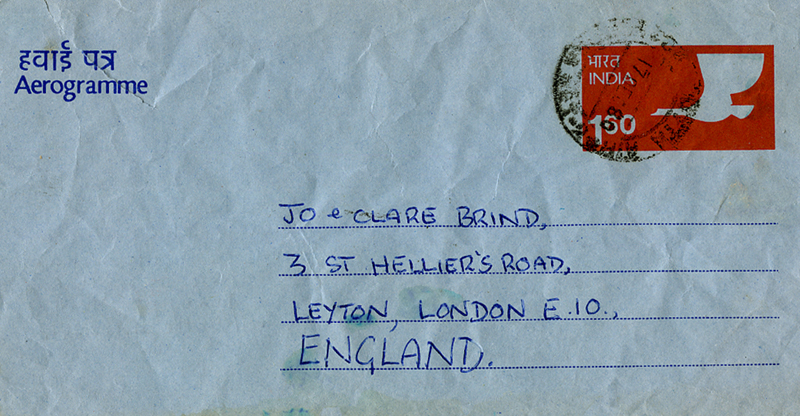 हवाई पत्र
Aerogramme
भारत
INDIA
160
JO & CLARE BRIND,
3 ST HELLIER'S ROAD,
LEYTON, LONDON E.10.,
ENGLAND.